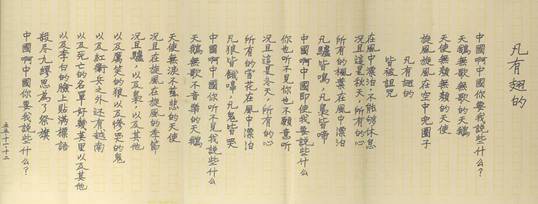 凡有翅的
中國啊中國你要我說些什么?
天鵝無歌無歌的天鵝
天使無顏無頰的天使
旋風旋風在空中兜圈子
凡有翅的
皆被詛咒
在風中漂泊,不能够休息
况且這是秋天,所有的心
所有的楓葉在風中漂泊
凡驢皆鳴,凡梟皆啼
中國啊中國即使我要說些什么
你也听不見你也不願意听
况且這是冬天,所有的心
所有的雪花在風中漂泊
凡狼皆餓嘷,凡鬼皆哭
中國啊中國你听不見我說些什么
天鵝無歌不音樂的天鵝
天使無淚不慈悲的天使
况且在旋風在旋風的季節
况且驢,以及梟,以及其他
以及厲焚的狼以及慘哭的鬼
以及紅衛兵之外还有越南
以及死亡的名單好難莫里以及其他
以及李白的臉上貼滿標語
殺尽九繆思為了祭旗
中國啊中國你要我說些什么?
五五·十一·十二